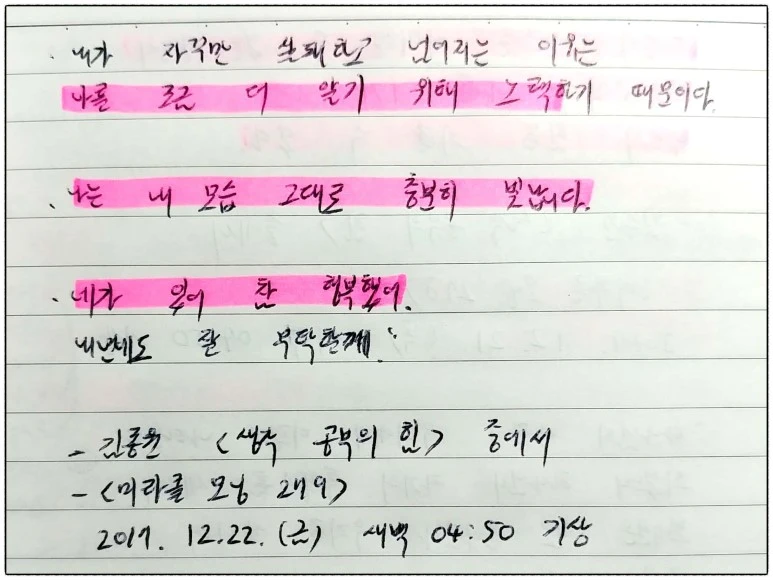 · 내가 자꾸만 실패하고 넘어지는 이유는
나를 조금 더 알기 위해 노력하기 때문이다.
· 나는 내 모습 그대로 충분히 빛납니다.
· 네가 있어 참 행복했어.
내년에도 잘 부탁할게.
- 김종원 <생각 공부의 힘> 중에서
- <미라클 모닝 269>
2017. 12.22. (금) 새벽 04:50 기상